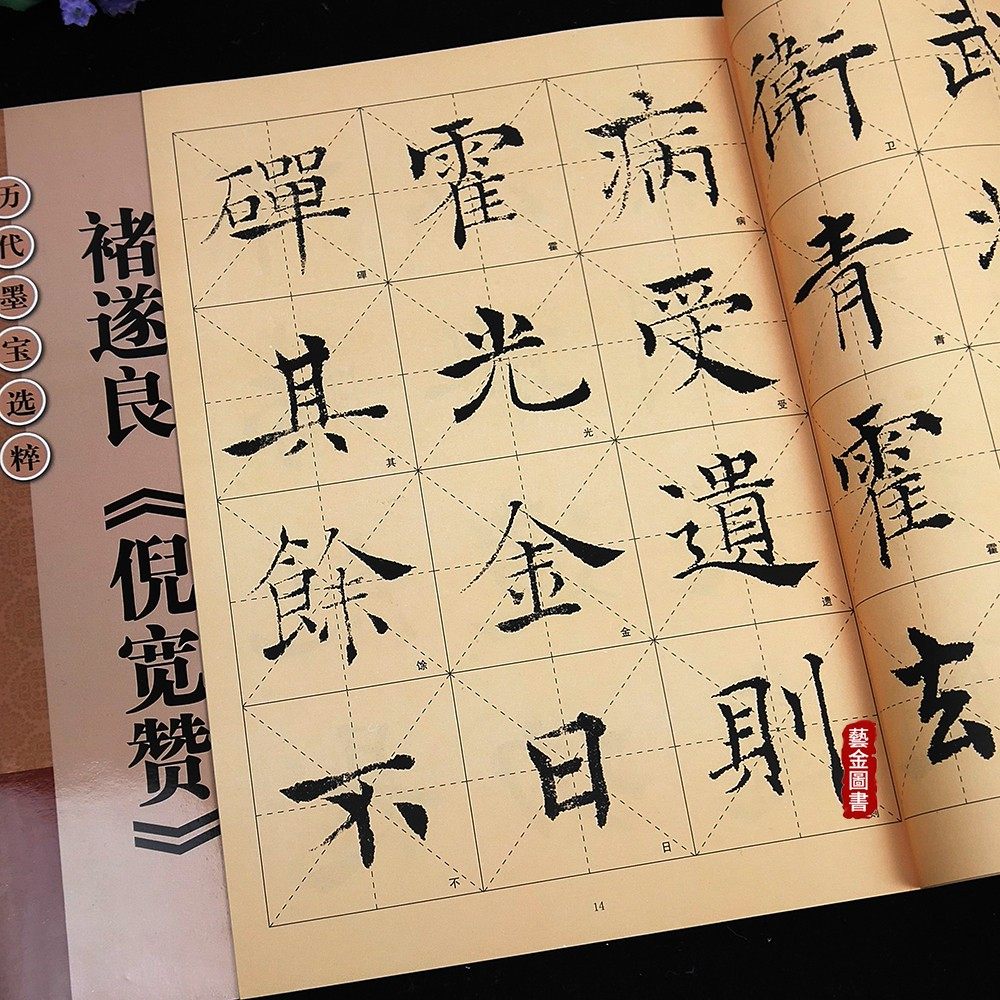 历代墨宝选粹
褚遂良《倪宽赞》
武
衛青霍去
卫青霍
病受遺則
病受遗则
霍光金日
霍光金日
磾其餘不
磾其馀不
14
藝金圖書